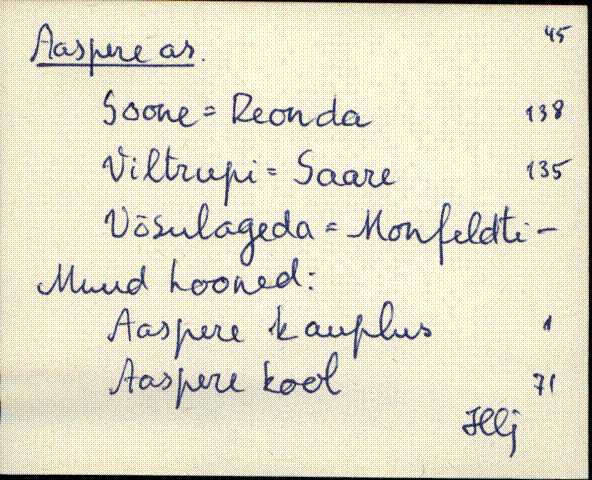 45
Aaspere as.
Soone = Reonda 138
Viltrupi = Saare 135
Võsulageda = Monfeldti -
Muud hooned:
Aaspere kauplus 1
Aaspere kool 71